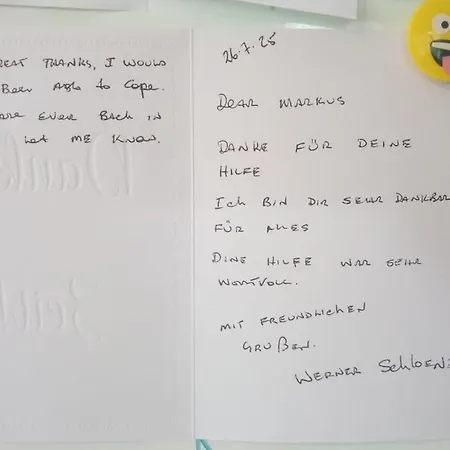 REAT THANKS, I WOULD
BEEN ABLE TO COPE.
ARE EVER BACK IN
LET ME KNOW.
Dank
Zeit
26.7.25
DEAR MARKUS
DANKE FÜR DEINE
HILFE
ICH BIN DIR SEHR DANKBAR
FÜR ALLES
DINE HILFE WAR SEHR
WORTVOLL.
MIT FREUNDLICHEN
GRUßEN.
WERNER SCHLOEN